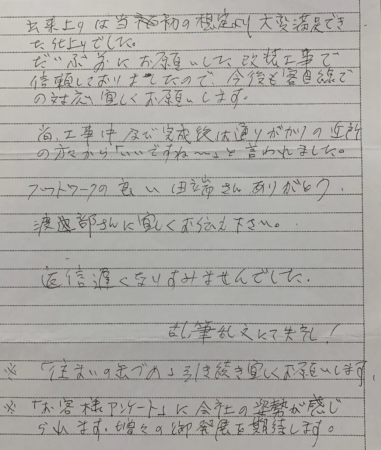 出来上りは当初の想定より大変満足でき
た仕上りでした。
だいぶ前にお願いした改装工事で
信頼しておりましたので、今後も客目線で
の対応宜しくお願いします。
尚、工事中及び完成後は通りがかりの近所
の方々から「いいですね〜」と言われました。
フットワークの良い田端さんありがとう.
渡邊部さんに宜しくお伝え下さい。
返信遅くなりすみませんでした.
乱筆乱文にて失礼!
※ 「住まいの缶づめ」引き続き宜しくお願いします
※ 「お客様アンケート」に会社の姿勢が感じ
られます。増々の御発展を期待します。